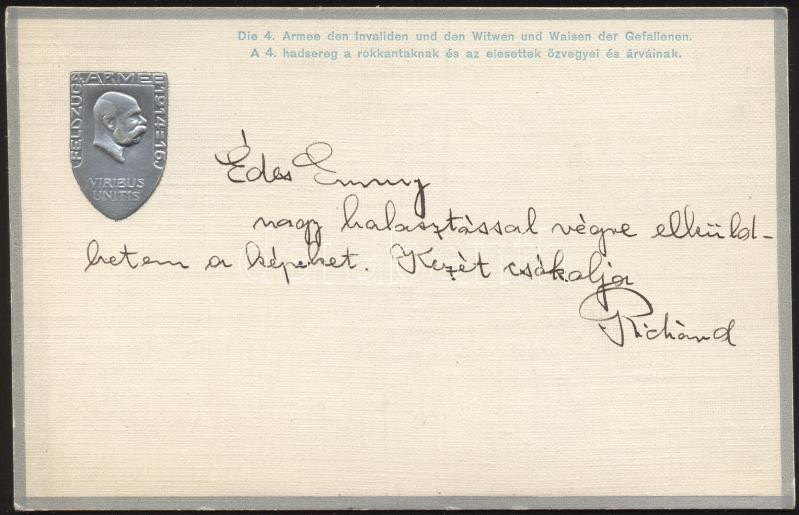 Die 4. Armee den Invaliden und den Witwen und Waisen der Gefallenen.
A 4. hadsereg a rokkantaknak és az elesettek özvegyei és árváinak.
4. ARMEE
FELDZUG
1914-16
VIRIBUS
UNITIS
Édes Emmy
nagy halasztással végre elküld-
hetem a képeket. Kezèt csókolja
Richàrd